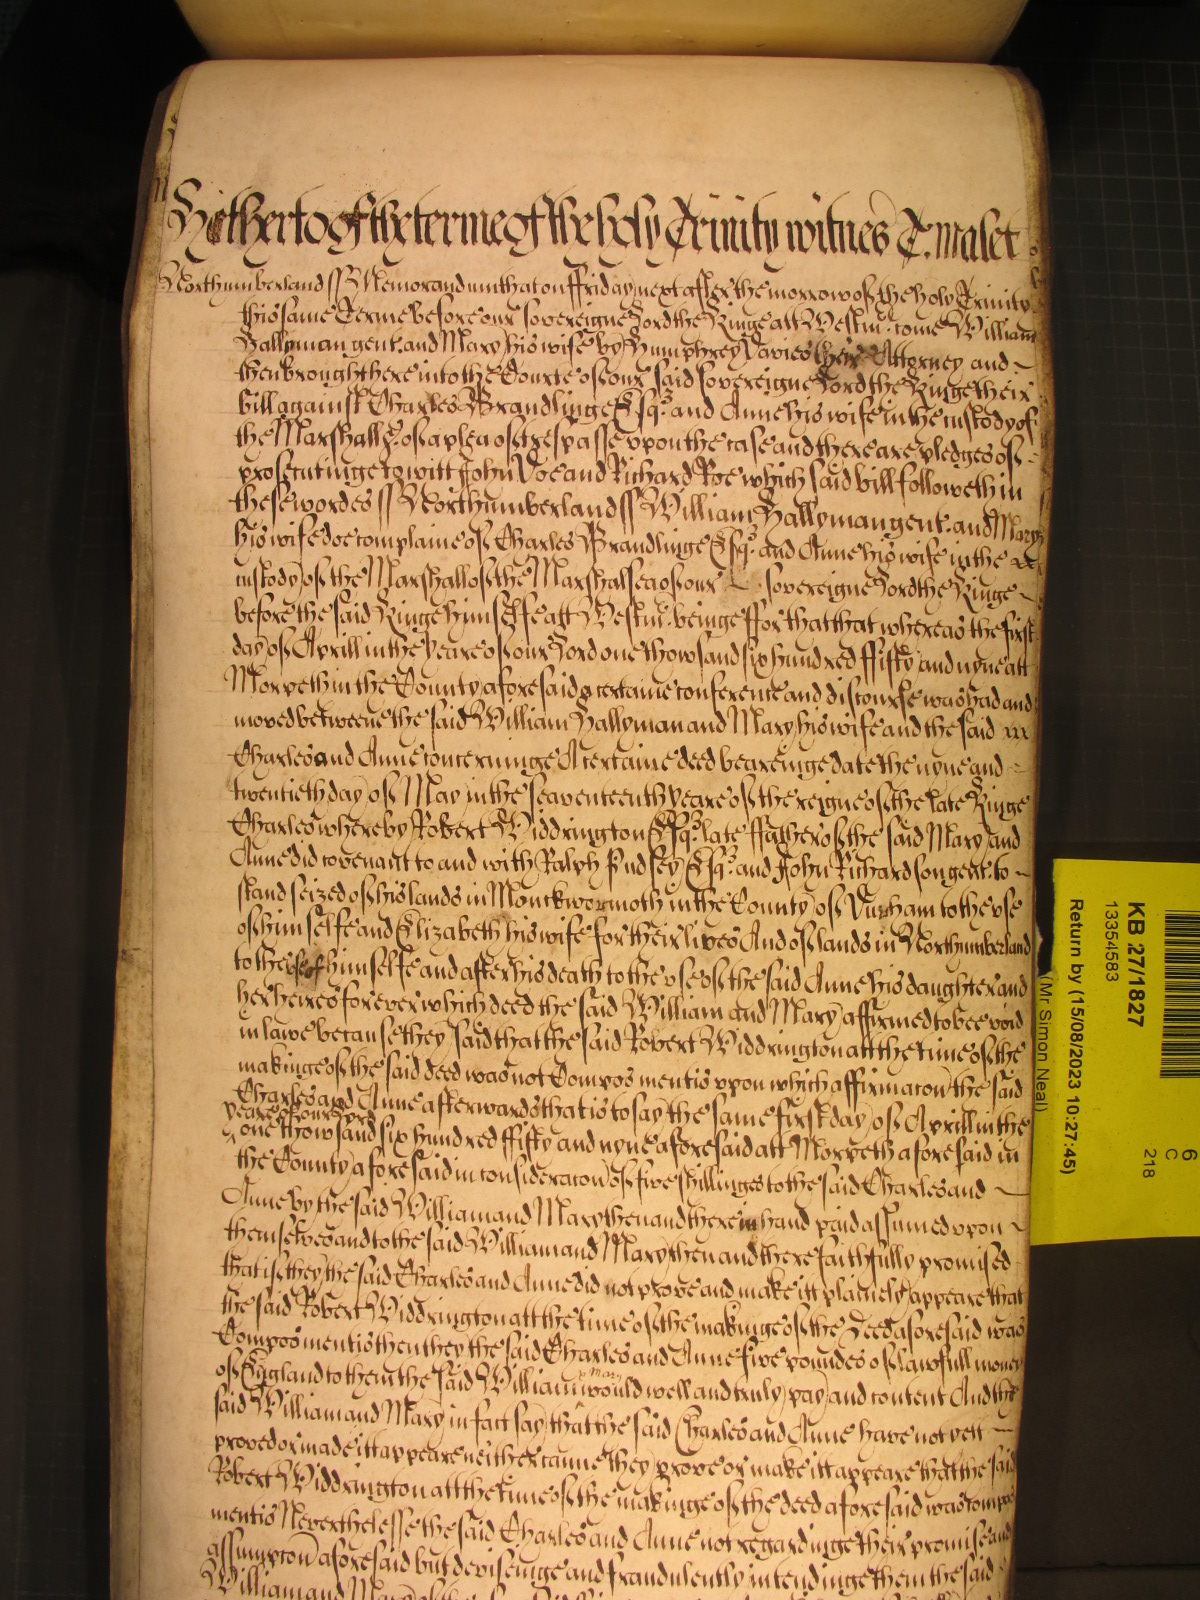 Hitherto of the terme of the holy Trinity witnes T. Malet
Northumberland ss Memorandum that on ffriday next after the morrow of the holy Trinity
this same Terme before our sovereigne Lord the Kinge att Westm. come William
Hallyman gent. and Mary his wife by Humphrey Davies their Attorney and
then brought here into the Courte of our said sovereigne Lord the Kinge their
bill against Charles Brandlinge Esqr. and Anne his wife in the custody of
the Marshall &c. of a plea of trespasse upon the case and there are pledges of
prosecutinge to witt John Doe and Richard Roe which said bill followeth in
these wordes ss Northumberland ss William Hallyman gent. and Mary
his wife doe complaine of Charles Brandlinge Esqr. and Anne his wife in the
custody of the Marshall of the Marshalsea of our sovereigne Lord the Kinge
before the said Kinge himselfe att Westm. beinge ffor that that whereas the first
day of Aprill in the yeare of our Lord one thowsand six hundred ffifty and nyne att
Morpeth in the County aforesaid a certaine conference and discourse was had and
moved betweene the said William Hallyman and Mary his wife and the said
Charles and Anne concerninge A certaine deed beareinge date the nyne and
twentieth day of May in the seaventeenth yeare of the reigne of the late Kinge
Charles whereby Robert Widdrington Esqr. late ffather of the said Mary and
Anne did covenant to and with Ralph Esqr. and John Richardson gent. to
stand seized of his lands in Monckwormoth in the County of Durham to the use
of himselfe and Elizabeth his wife for their lives And of lands in Northumberland
to the use of himselfe and after his death to the use of the said Anne his daughter and
her heires for ever which deed the said William and Mary affirmed to bee void
in lawe because they said that the said Robert Widdrington att the time of the
makinge of the said deed was not Compos mentis upon which affirmacon the said
Charles and Anne afterwards that is to say the same first day of Aprill in the
yeare of our Lord
one thowsand six hundred ffifty and nyne aforesaid att Morpeth aforesaid in
the County aforesaid in consideracon of five shillinges to the said Charles and
Anne by the said William and Mary then and there in hand paid assumed upon
themselves and to the said William and Mary then and there faithfully promised
that if they the said Charles and Anne did not prove and make itt plainely appeare that
the said Robert Widdrington att the time of the makinge of the Deed aforesaid was
Compos mentis then they the said Charles and Anne five poundes of lawfull money
of England to them the said William & Mary would well and truly pay and content And the
said William and Mary in fact say that the said Charles and Anne have not yett
proved or made itt appeare neither canne they prove or make itt appeare that the said
Robert Widdrington att the time of the makinge of the deed aforesaid was compos
mentis Neverthelesse the said Charles and Anne not regardinge their promise and
assumpcon aforesaid but deviseinge and fraudulently intendinge them the said
William and Mary
KB 27/1827
13354583
Return by (15/08/2023 10:27:45)
(Mr Simon Neal)
6
C
218